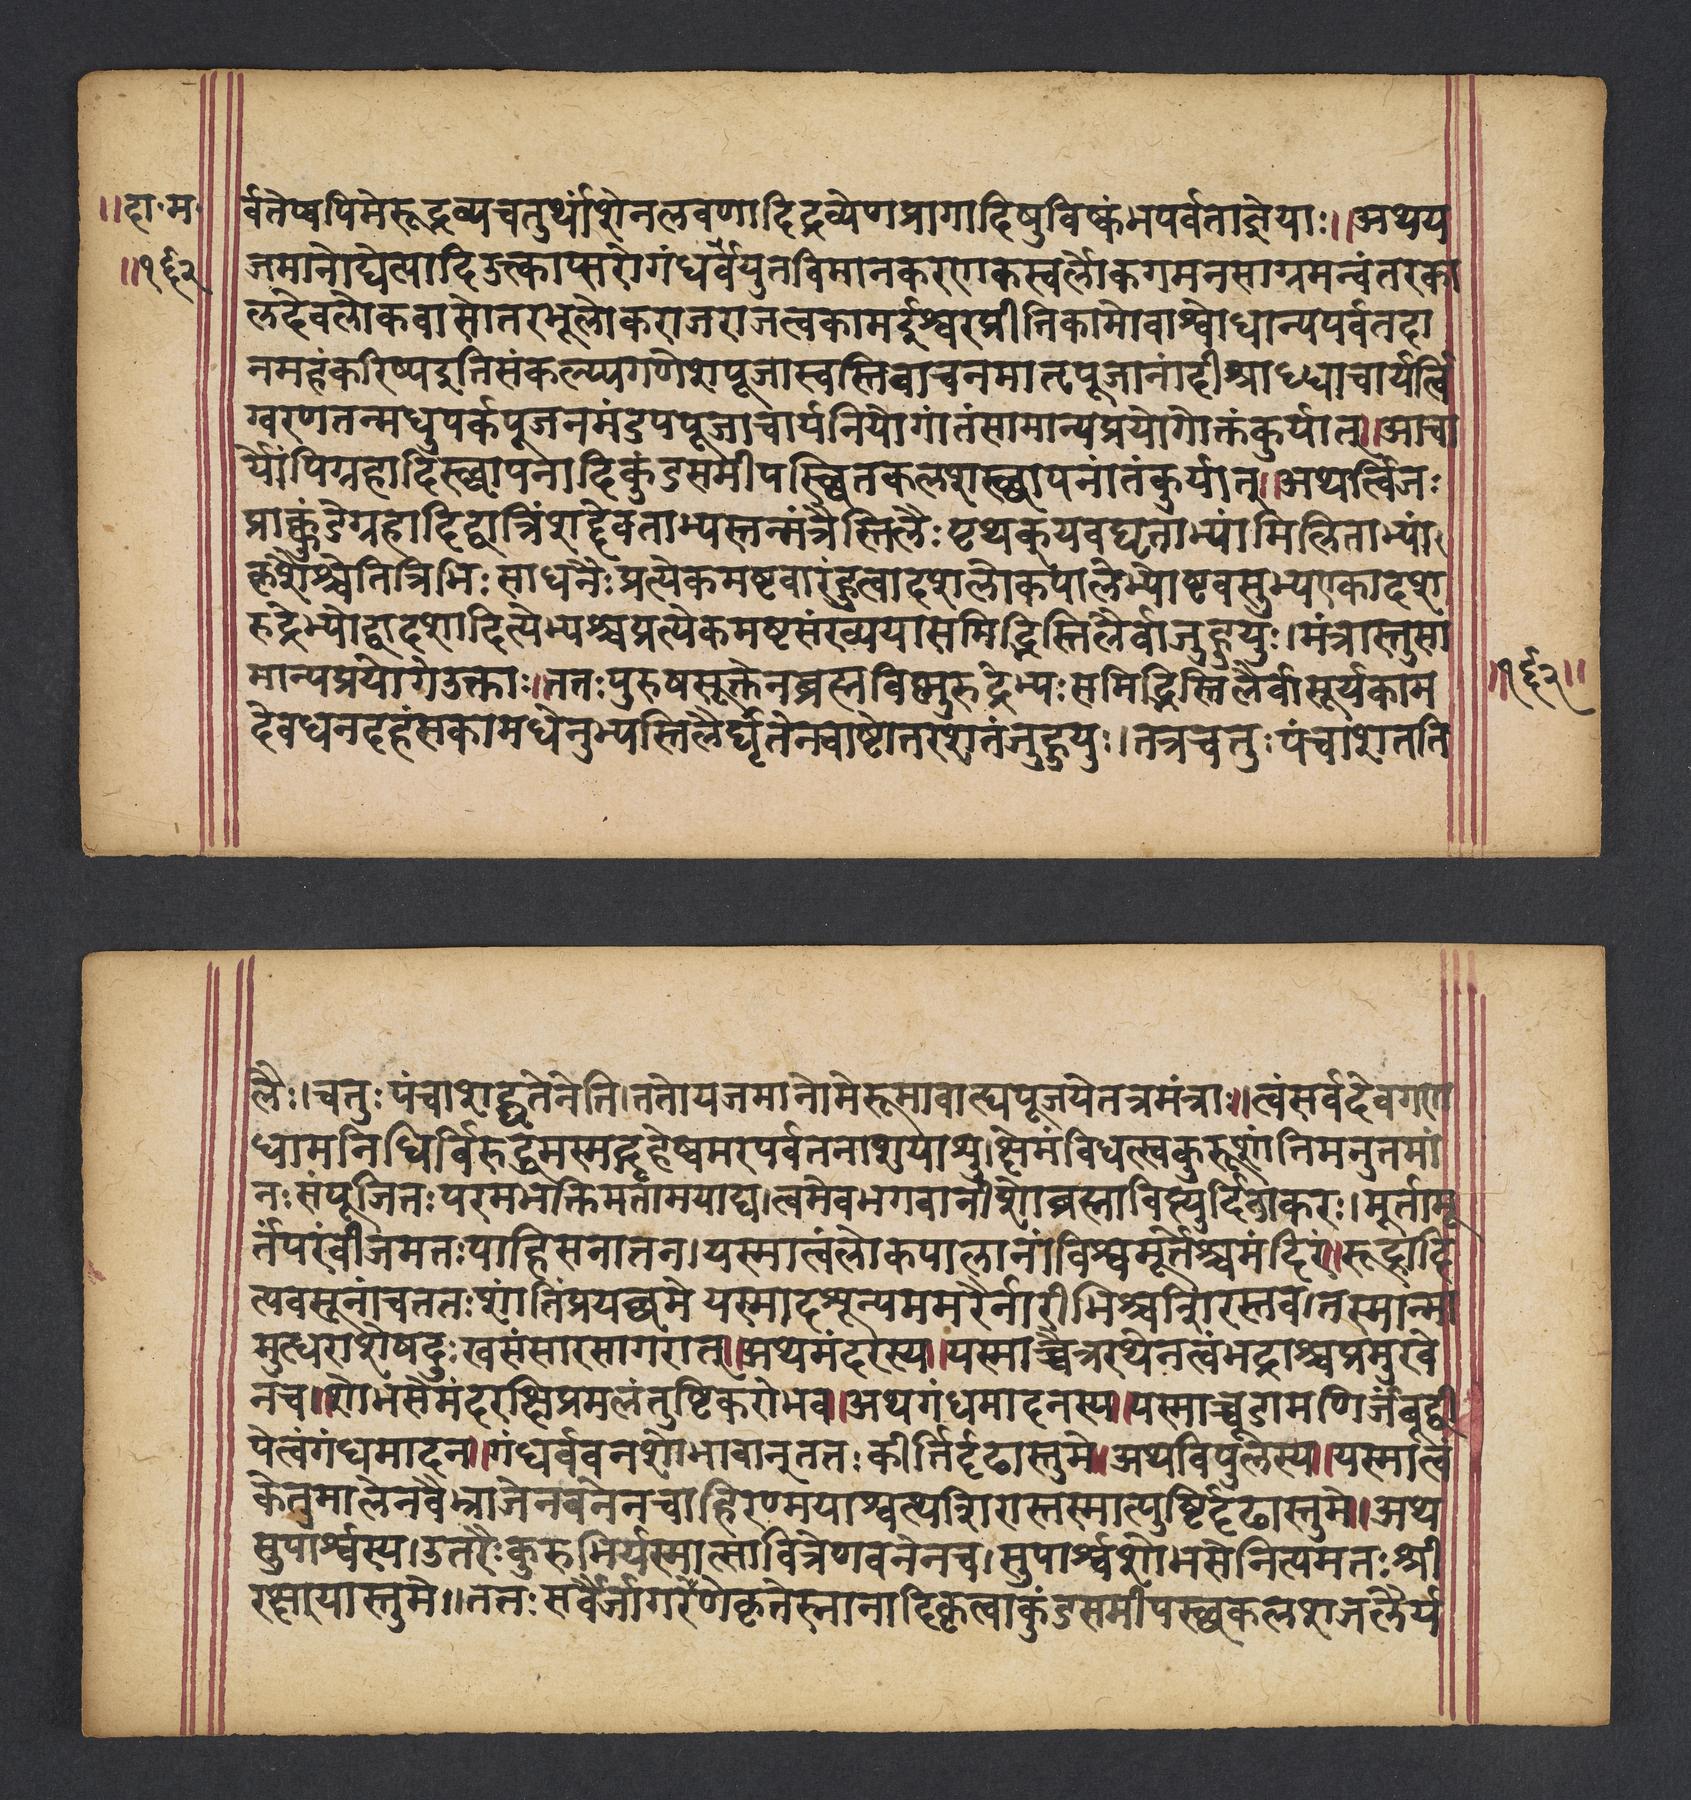 ॥दा॰म॰
॥१६२
र्वतेष्वपिमेरूद्रव्यचतुर्थांशेनलवणादिद्रव्येणप्रागादिषुविष्कंभपर्वताज्ञेयाः॥अथय
जमानोद्येत्यादिउत्काप्सरोगंधर्वैयुतविमानकरणकस्वर्लोकगमनसाग्रमन्वंतरका
लदेवलोकवासोतरभूलोकराजराजत्वकामईश्वरप्रीतिकामोवाश्वोधान्यपर्वतदा
नमहंकरिष्यइतिसंकल्प्यगणेशपूजास्वस्तिवाचनमातृपूजानांदीश्राध्धाचार्यर्त्वि
ग्वरणतन्मधुपर्कपूजनमंडपपूजाचार्यनियोगांतंसामान्यप्रयोगोक्तंकुर्यात्॥आचा
र्योपिग्रहादिस्छापनादिकुंडसमीपस्छितकलशस्छापनांतंकुर्यात्॥अथर्त्विजः
प्राक्कुंडेग्रहादिद्वात्रिंशद्देवताभ्यस्तन्मंत्रैस्तिलैःपृथक्यवघृताभ्यांमिलिताभ्यां
क्लशैश्चेतित्रिभिःसाधनैःप्रत्येकमष्टवारंहुत्वादशलोकपालेभ्योष्टवसुभ्यएकादश
रुद्रेभ्योद्वादशादित्येभ्यश्चप्रत्येकमष्टसंख्ययासमिद्भिस्तिलैर्वाजुहुयुः।मंत्रास्तुसा
मान्यप्रयोगेउक्ताः॥ततःपुरुषसूक्तेनब्रह्मविष्णुरुद्रेभ्यःसमिद्भिस्तिलैर्वासूर्यकाम
देवधनदहंसकामधेनुभ्यस्तिलैर्घृतेनवाष्टोतरशतंजुहुयुः।तत्रचतुःपंचाशतति
॥१६२॥
लैः।चतुःपंचाशद्घृतेनेति।ततोयजमानोमेरूमावाह्यपूजयेतत्रमंत्राः॥त्वंसर्वदेवगण
धामनिधिर्विरुद्धमस्मद्गृहेष्वमरपर्वतनाशयाशु।क्षेमंविधत्स्वकुरूशांतिमनुतमां
नःसंपूजितःपरमभक्तिमतामयाद्य।त्वमेवभगवानीशोब्रह्माविष्णुर्दिवाकरः।मूर्तामू
र्तंपरंबीजमतःपाहिसनातन।यस्मात्वंलोकपालानांविश्वमूर्तेश्चमंदिरं॥रूद्रादि
त्यवसूनांचततःशांतिंप्रयछमे यस्मादशून्यममरैर्नारीभिश्चशिरस्तव।तस्मान्मा
मुत्धराशेषदुःखसंसारसागरात्॥अथमंदरस्य॥यस्माच्चैत्ररथेनत्वंभद्राश्वप्रमुखे
नच।शोभसेमंदरक्षिप्रमलंतुष्टिकरोभव॥अथगंधमादनस्य॥यस्माच्चूडामणिर्जंबूद्वी
पेत्वंगंधमादन॥गंधर्ववनशोभावानततःकीर्तिर्दृढास्तुमे॥अथविपुलस्य॥यस्मात्वं
केतुमालेनवैभ्राजेनवनेनचाहिरण्मयाश्वत्थशिरास्तस्मात्पुष्टिर्दृढास्तुमे॥अथ
सुपार्श्वस्य।उतरैःकुरुभिर्यस्मात्सावित्रेणवनेनच।सुपार्श्वशोभसेनित्यमतःश्री
रक्षयास्तुमे॥ततःसर्वैर्जागरणेकृतेस्नानादिकृत्वाकुंडसमीपस्छकलशजलैर्य